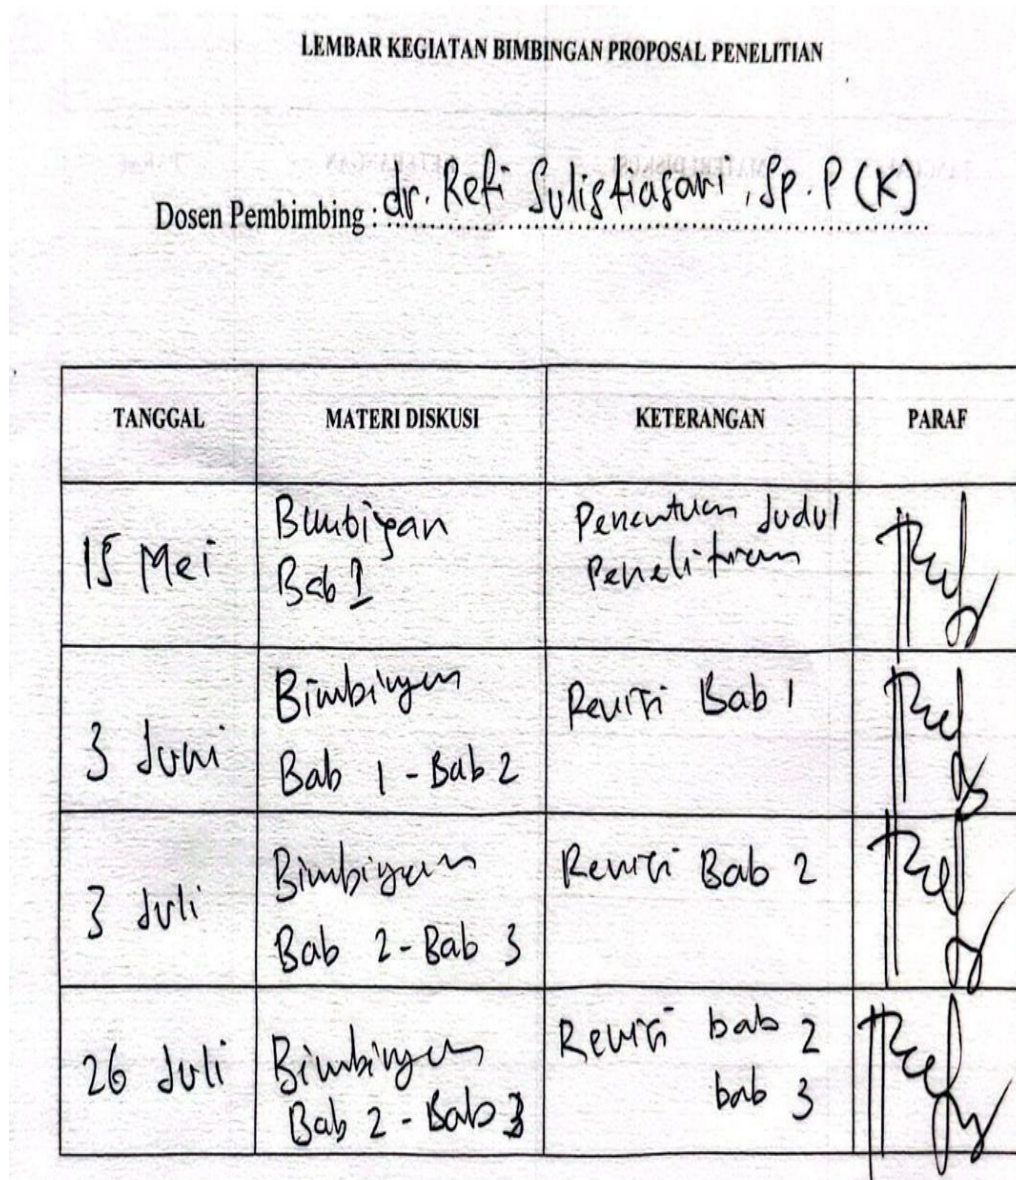 LEMBAR KEGIATAN BIMBINGAN PROPOSAL PENELITIAN
Dosen Pembimbing : dr. Refi Sulistiasari, Sp. P (K)
TANGGAL MATERI DISKUSI KETERANGAN PARAF
15 Mei
Bimbigan
Bab 1
Penentuan Judul
Penelitian
3 Juni
Bimbingan
Bab 1 - Bab 2
Revisi Bab 1
3 Juli
Bimbigan
Bab 2 - Bab 3
Revisi Bab 2
26 Juli
Bimbingan
Bab 2 - Bab 3
Revisi bab 2
bab 3